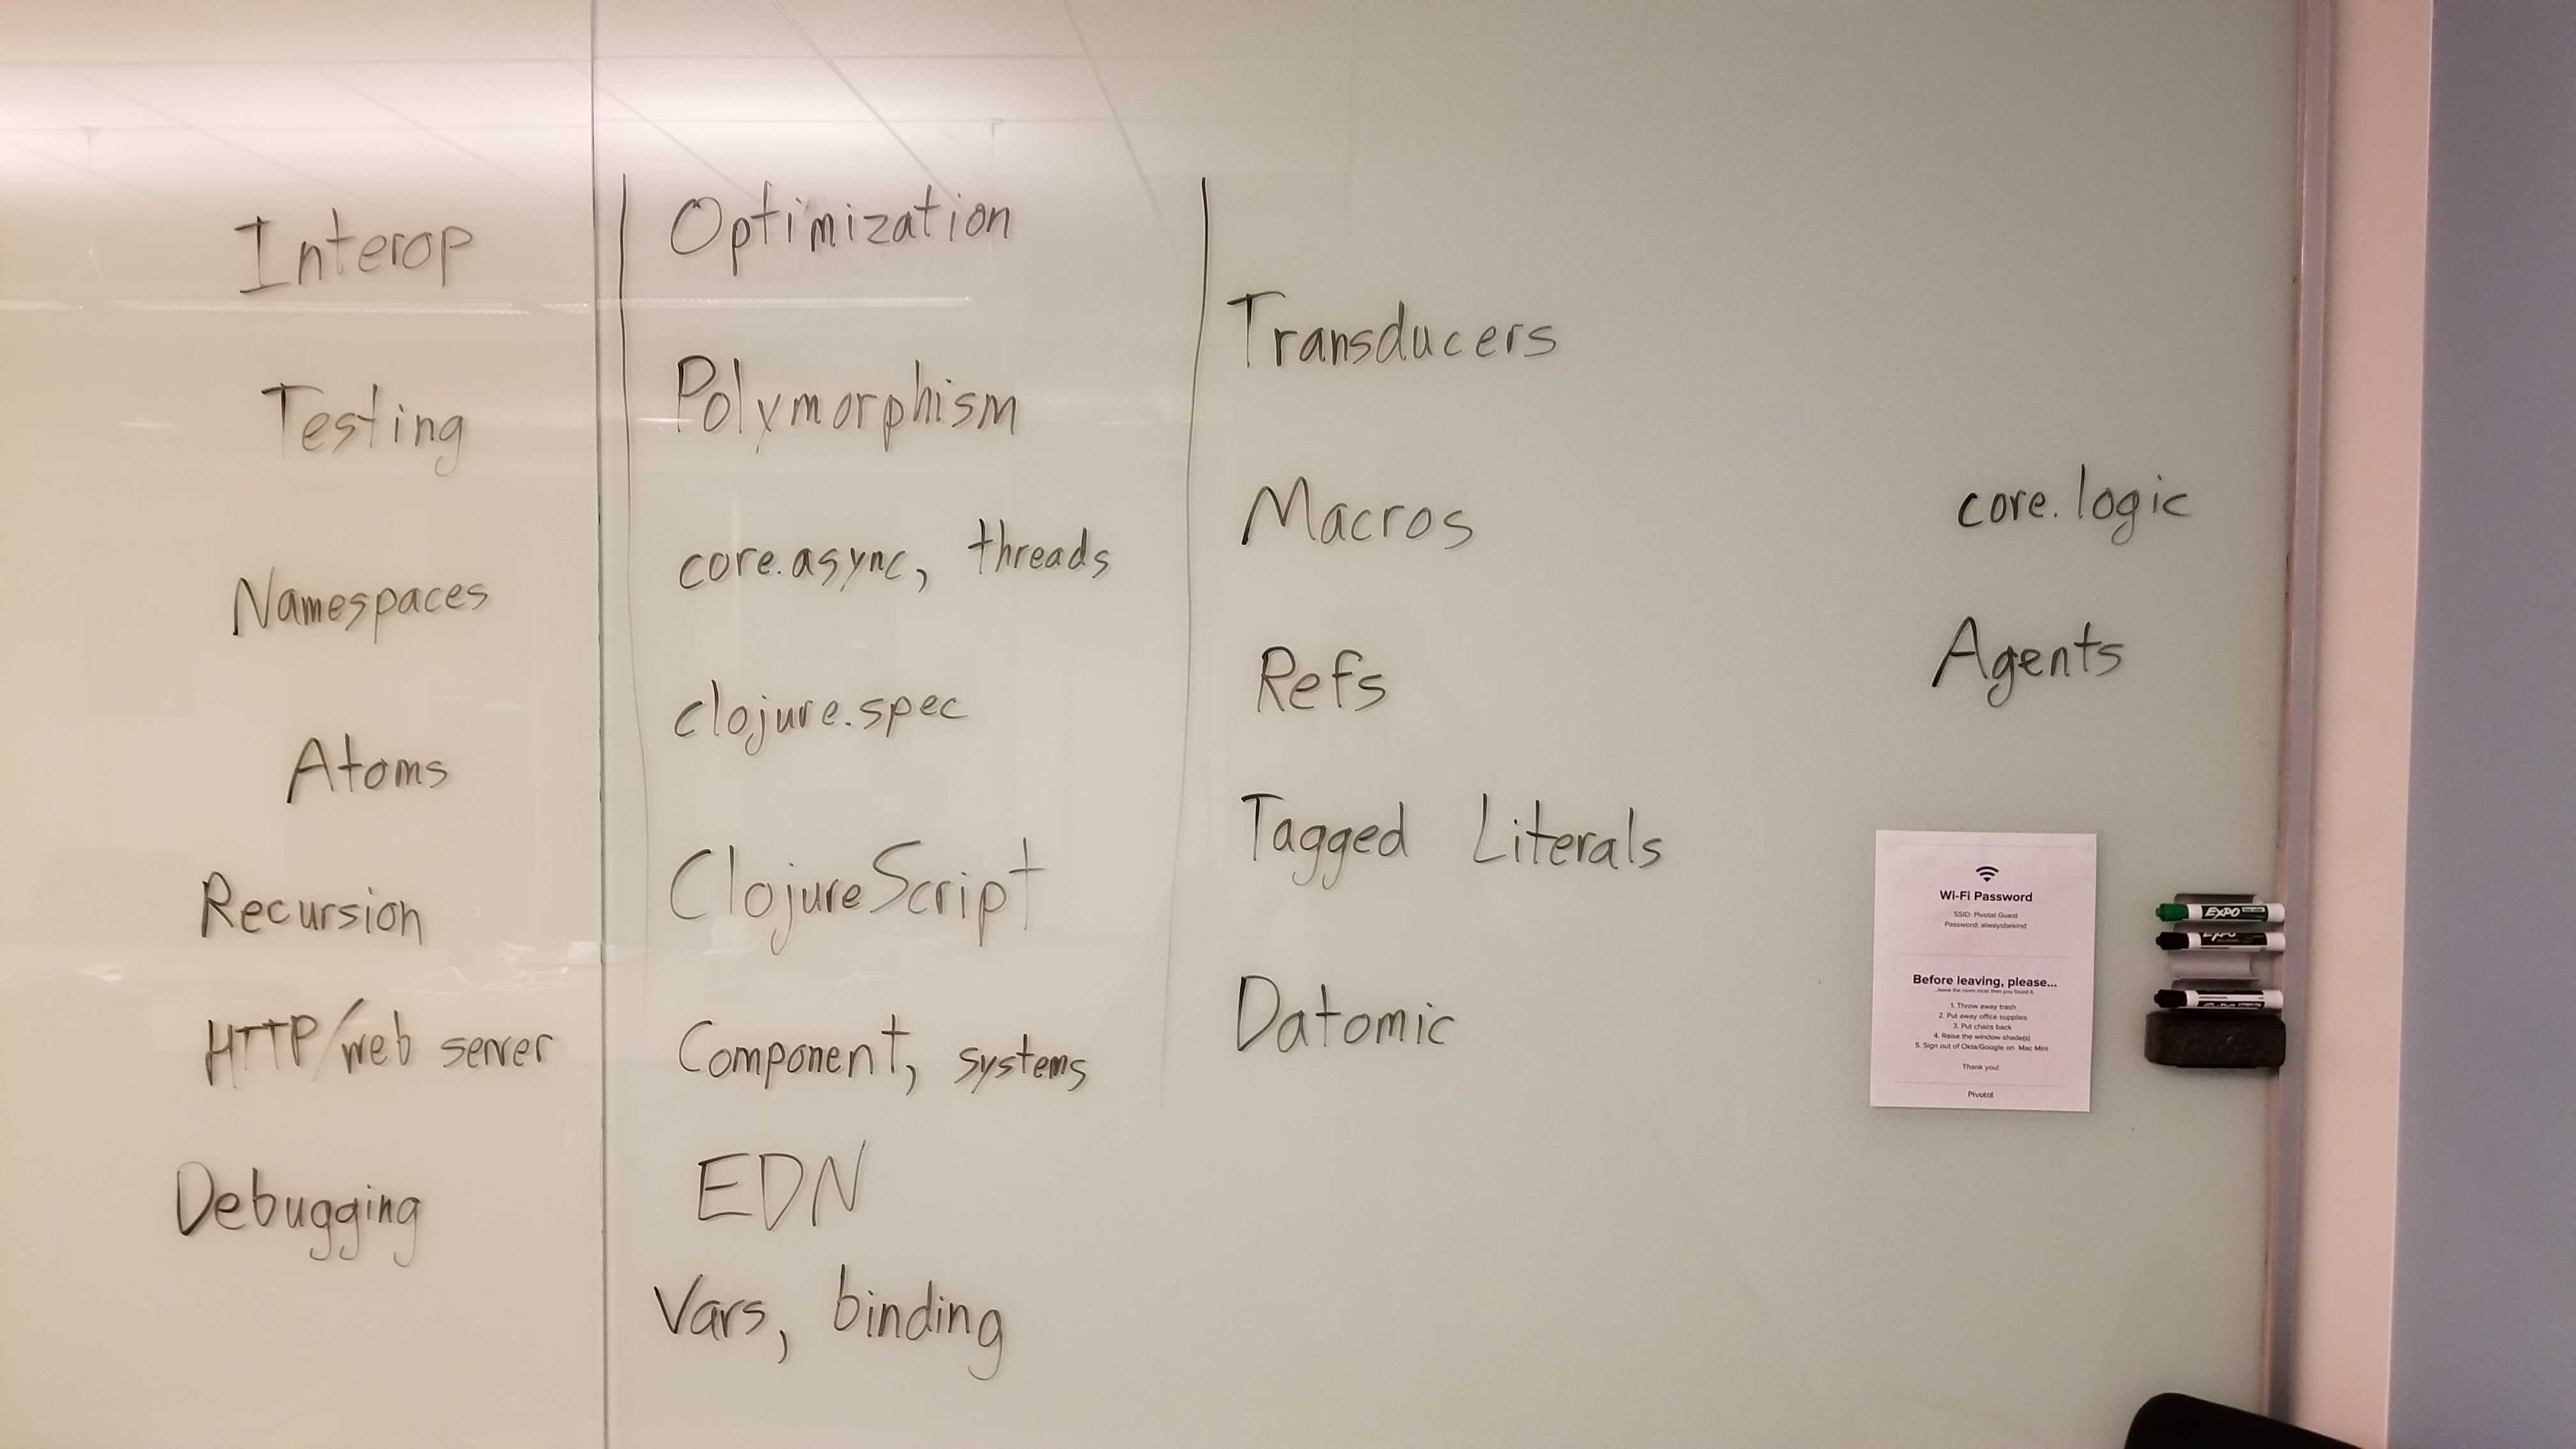 Interop
Testing
Namespaces
Atoms
Recursion
HTTP/web server
Debugging
Optimization
Polymorphism
core.async, threads
clojure.spec
ClojureScript
Component, systems
EDN
Vars, binding
Transducers
Macros
Refs
Tagged Literals
Datomic
core.logic
Agents
Wi-Fi Password
SSID: Pivotal Guest
Password: alwaysbekind
Before leaving, please...
...leave the room nicer than you found it.
1. Throw away trash
2. Put away office supplies
3. Put chairs back
4. Raise the window shade(s)
5. Sign out of Okta/Google on Mac Mini
Thank you!
Pivotal
EXPO
EXPO